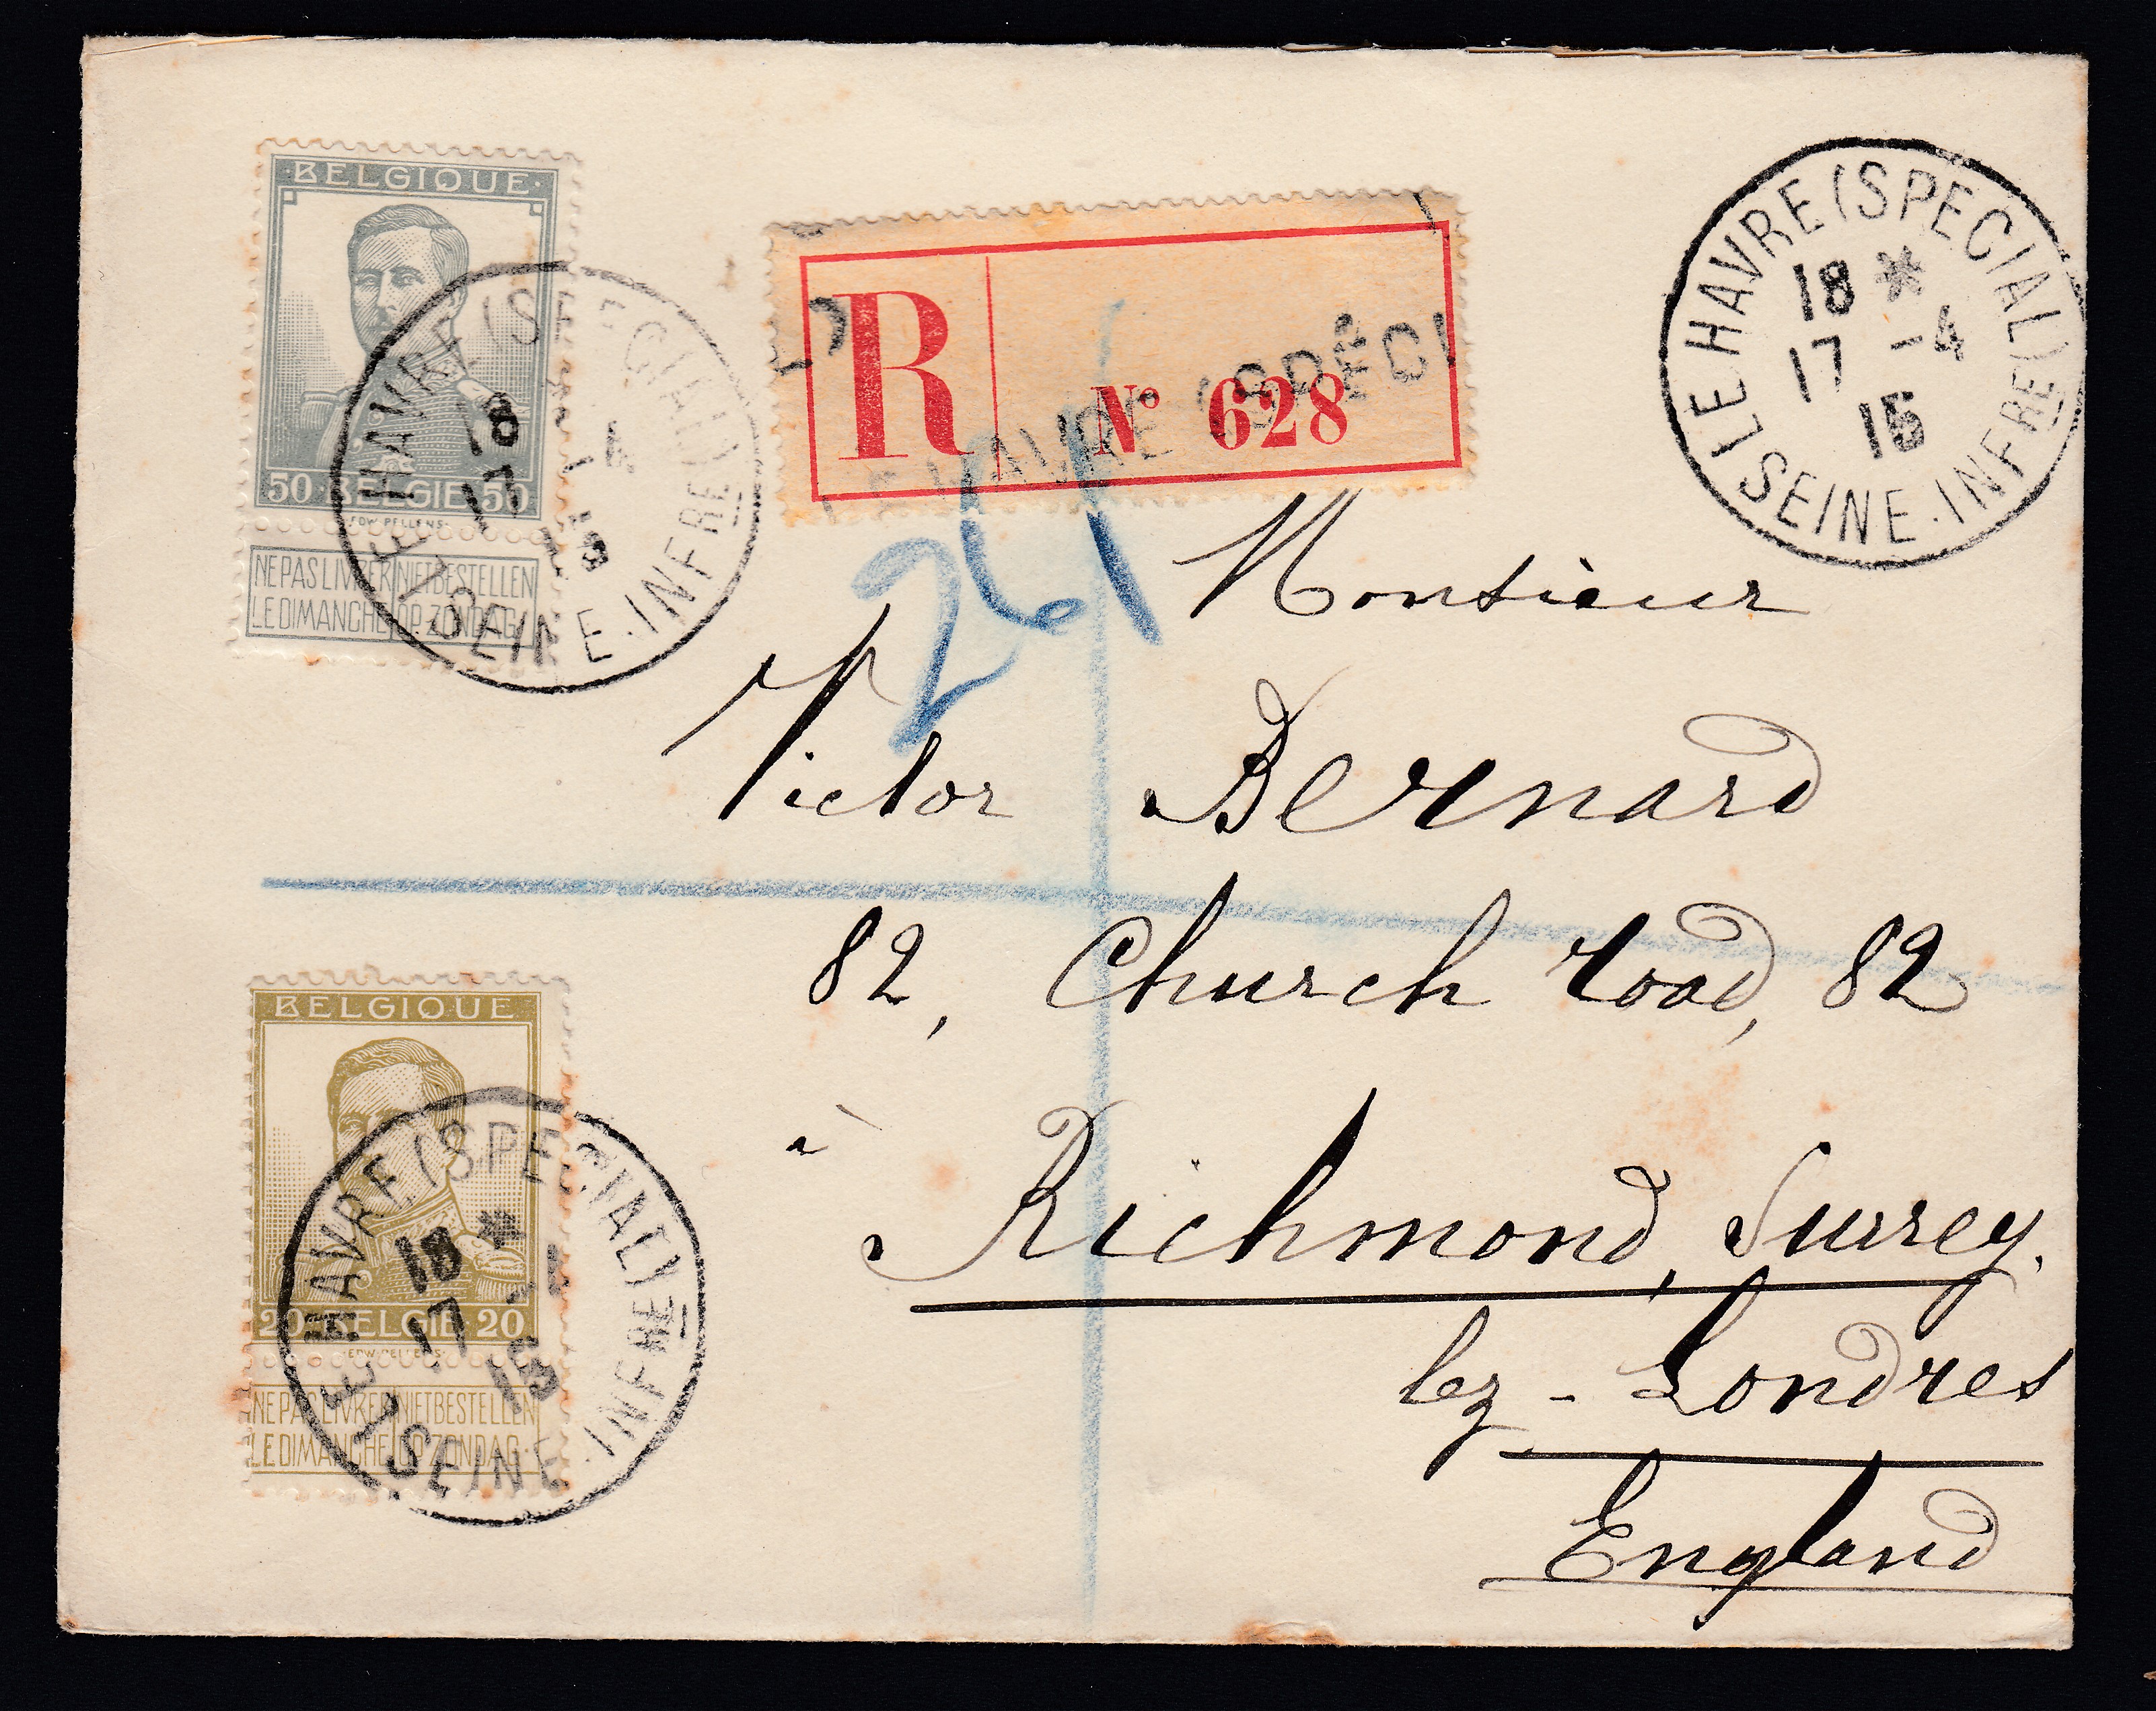 BELGIQUE
50 BELGIË 50
EDW. PELLENS
NE PAS LIVRER NIET BESTELLEN
LE DIMANCHE OP ZONDAG
LE HAVRE (SPECIAL)
18
17
SEINE-INFRE
R
Nº 628
LE HAVRE (SPÉCI
LE HAVRE (SPECIAL) SEINE-INFRE
18 *
17 -4
15
24
Monsieur
Victor Bernard
82, Church road, 82
à
Richmond, Surrey.
lez-Londres
England
BELGIQUE
20 BELGIË 20
EDW. PELLENS
NE PAS LIVRER NIET BESTELLEN
LE DIMANCHE OP ZONDAG
LE HAVRE (SPECIAL)
18 *
17
15
SEINE-INFRE